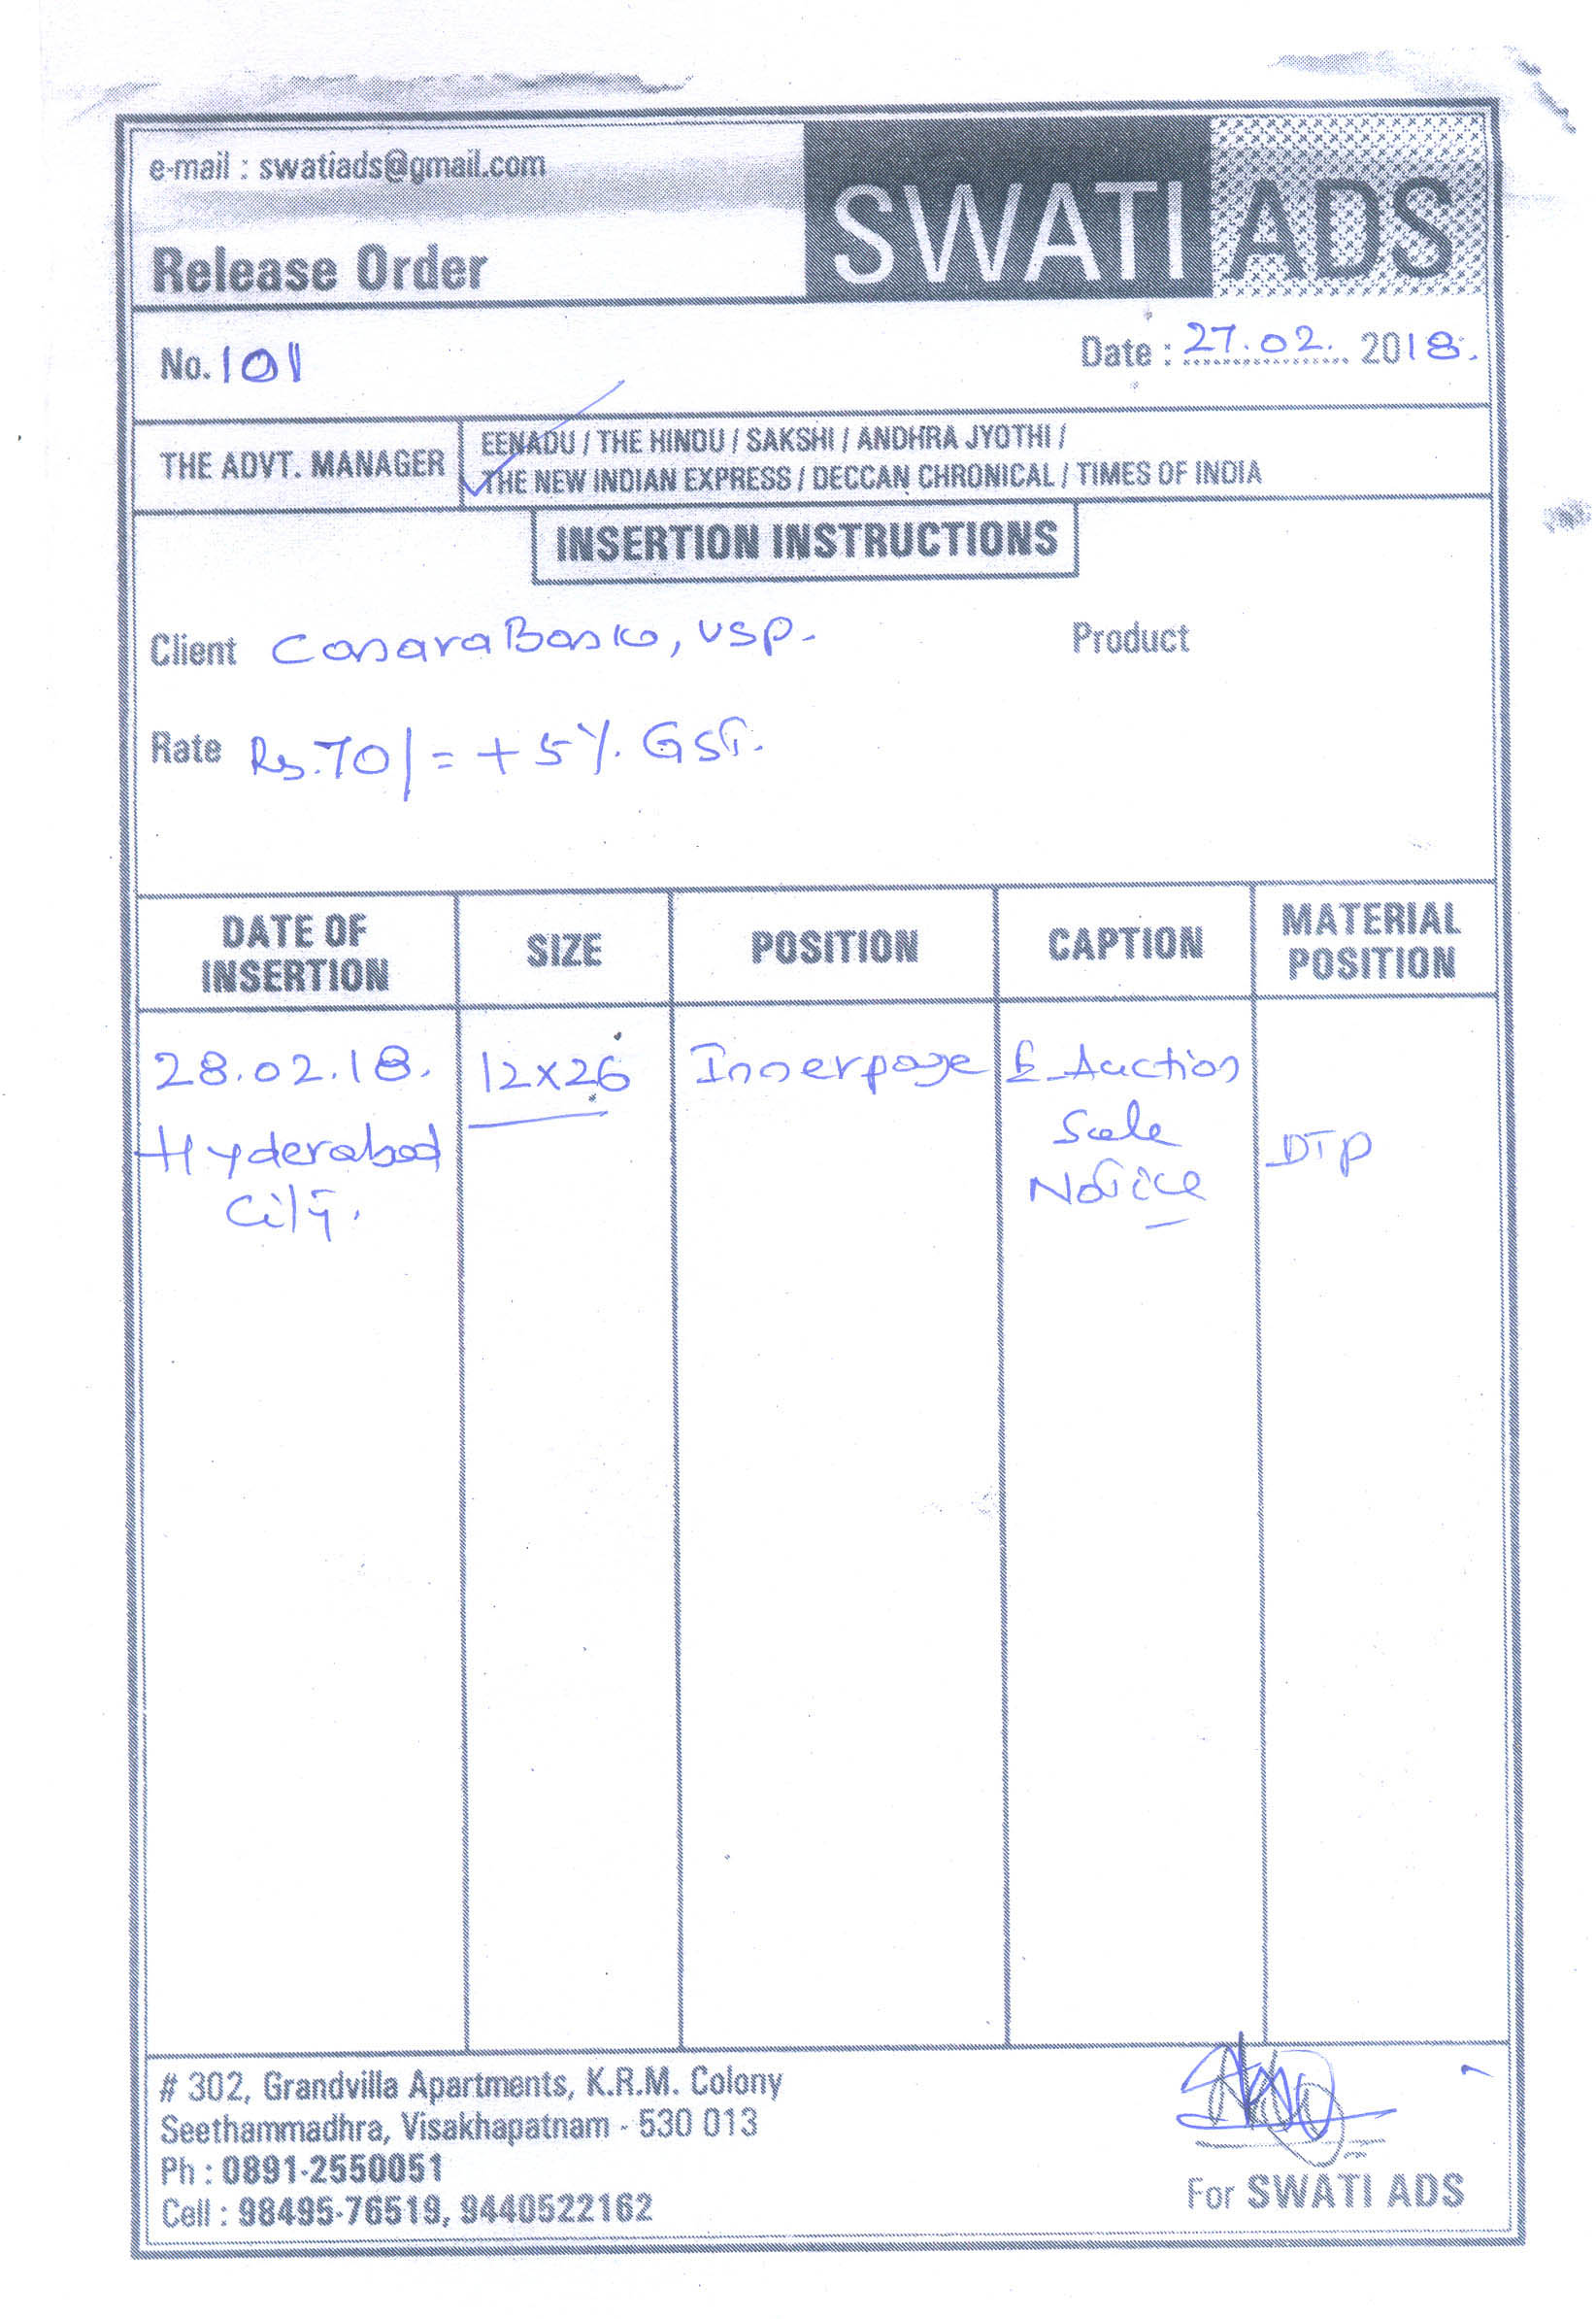 e-mail : swatiads@gmail.com
SWATI ADS
Release Order
No. 101
Date : 27.02. 2018.
THE ADVT. MANAGER
EENADU / THE HINDU / SAKSHI / ANDHRA JYOTHI /
THE NEW INDIAN EXPRESS / DECCAN CHRONICAL / TIMES OF INDIA
INSERTION INSTRUCTIONS
Client Canara Bank, VSP.
Product
Rate Rs.70/= + 5%. GST.
DATE OF
INSERTION
SIZE
POSITION
CAPTION
MATERIAL
POSITION
28.02.18.
Hyderabad
City.
12x26
Innerpage
E-Auction
Sale
Notice
DTP
# 302, Grandvilla Apartments, K.R.M. Colony
Seethammadhra, Visakhapatnam - 530 013
Ph : 0891-2550051
Cell : 98495-76519, 9440522162
For SWATI ADS